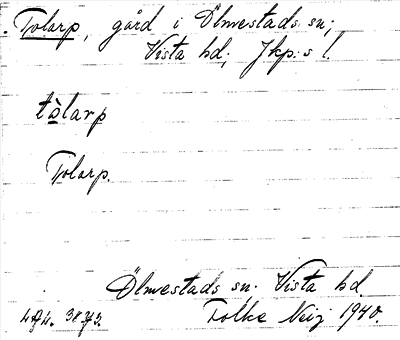 Tolarp, gård i Ölmestads sn;
Vista hd; Jkp:s l.
tòlarp
Tolarp.
Ölmestads sn. Vista hd.
Folke Neij 1940.